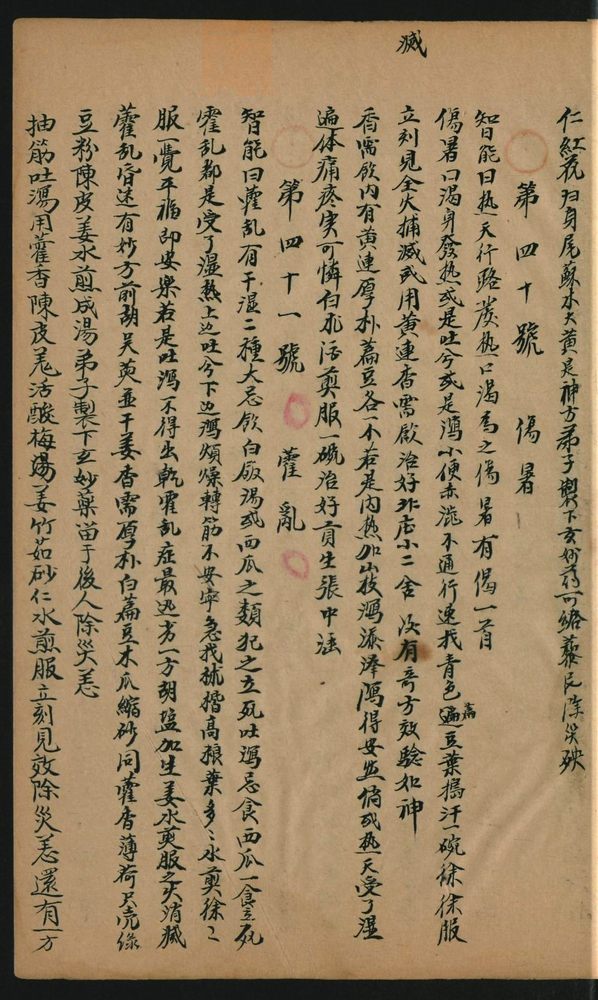 滅
仁紅花归身尾蘇木大黃是神方弟子製下玄妙药可結藜民除災殃
第四十號 傷暑
智能曰热天行路發热口渴為之傷暑有偈一首
傷暑口渴身發热或是吐兮或是瀉小便赤澁不通行速找青色遍萹豆葉搗汗一碗徐徐服
立刻見全火捕滅或用黄連香需飲治好北店小二舍没有奇方效驗如神
香需飲内有黄連厚朴萹豆各一不若是内热加山技瀉添澤瀉得安然倘或热天受了湿
遍体痛疼实可憐白水活煎服一碗治好貢生張中
第四十一號 藿亂
智能曰藿乱有干湿二種大忌飲白飯湯或西瓜之類犯之立死吐瀉忌食西瓜一食立死
霍乱都是受了湿热上边吐兮下边瀉煩燥轉筋不安寧急找梳揩高粮葉多〻水煎徐〻
服一覺平福即安樂若是吐瀉不得出乾霍乱症最迅方一方胡塩加生姜水煎服之火消滅
藿乱昏迷有妙方前胡吴萸並干姜香需厚朴白萹豆木瓜縮砂同藿香薄荷只壳綠
豆粉陳皮姜水煎成湯弟子製下玄妙藥留于後人除災恙
抽筋吐瀉用藿香陳皮羗活酸梅湯姜竹茹砂仁水煎服立刻見效除災恙還有一方